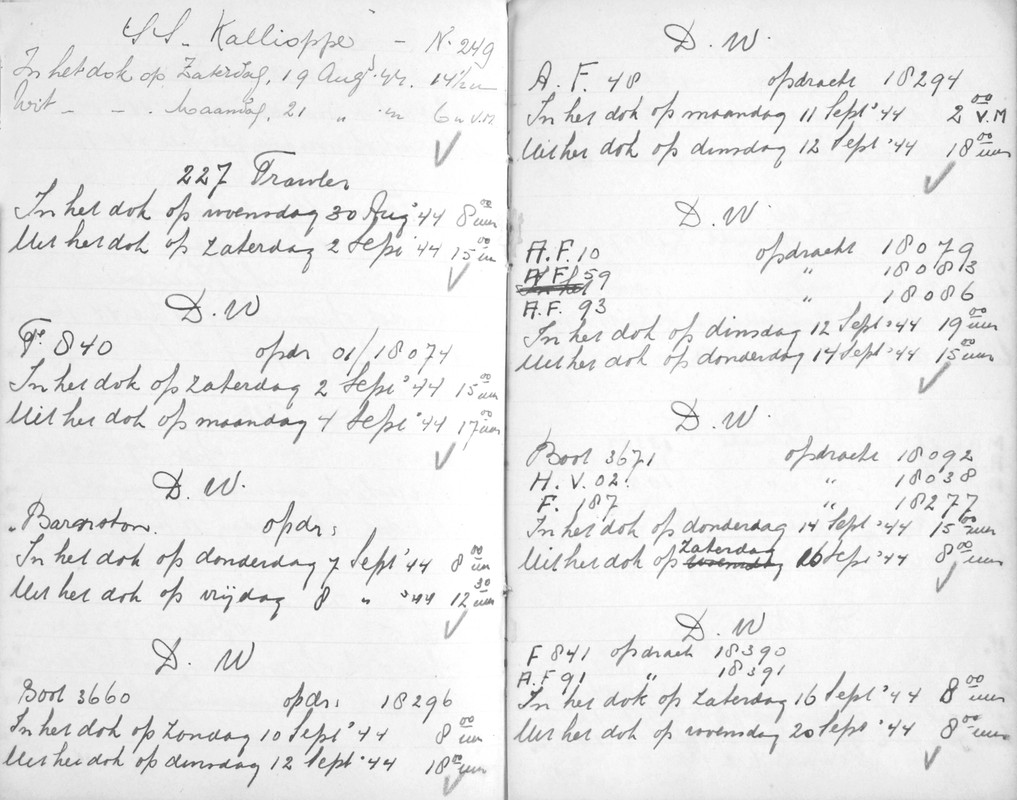 S.S. Kallioppe - N. 249
In het dok op Zaterdag, 19 Aug' 44. 14½ u
Uit - - . Maandag 21 „ „ 6 u V.M
227 Trawler
In het dok op woensdag 30 Aug' 44 8 00 uur
Uit het dok op Zaterdag 2 Sept '44 15 00 u
D. W
840 opdr 01/18074
In het dok op Zaterdag 2 Sept '44 15 00 uur
Uit het dok op maandag 4 Sept '44 17 00 uur
D. W.
opdr:
In het dok op donderdag 7 Sept '44 8 00 uur
Uit het dok op vrijdag 8 „ '44 12 30 uur
D. W
Boot 3660 opdr: 18296
In het dok op Zondag 10 Sept '44 8 00 uur
Uit het dok op dinsdag 12 Sept '44 18 00 uur
D. W.
A. F. 48 opdracht 18294
In het dok op maandag 11 Sept '44 2 00 V.M
Uit het dok op dinsdag 12 Sept '44 18 00 uur
D. W.
A.F. 10 opdracht 18079
A/F/ 59 „ 18083
A.F. 93 „ 18086
In het dok op dinsdag 12 Sept '44 19 00 uur
Uit het dok op donderdag 14 Sept '44 15 00 uur
D. W.
Boot 3671 opdracht 18092
H. V. 02. „ 18038
F. 187 „ 18277
In het dok op donderdag 14 Sept '44 15 00 uur
Uit het dok op Zaterdag woensdag 16 Sept '44 8 00 uur
D. W
F 841 opdracht 18390
A.F 91 „ 18391
In het dok op Zaterdag 16 Sept '44 8 00 uur
Uit het dok op woensdag 20 Sept '44 8 00 uur